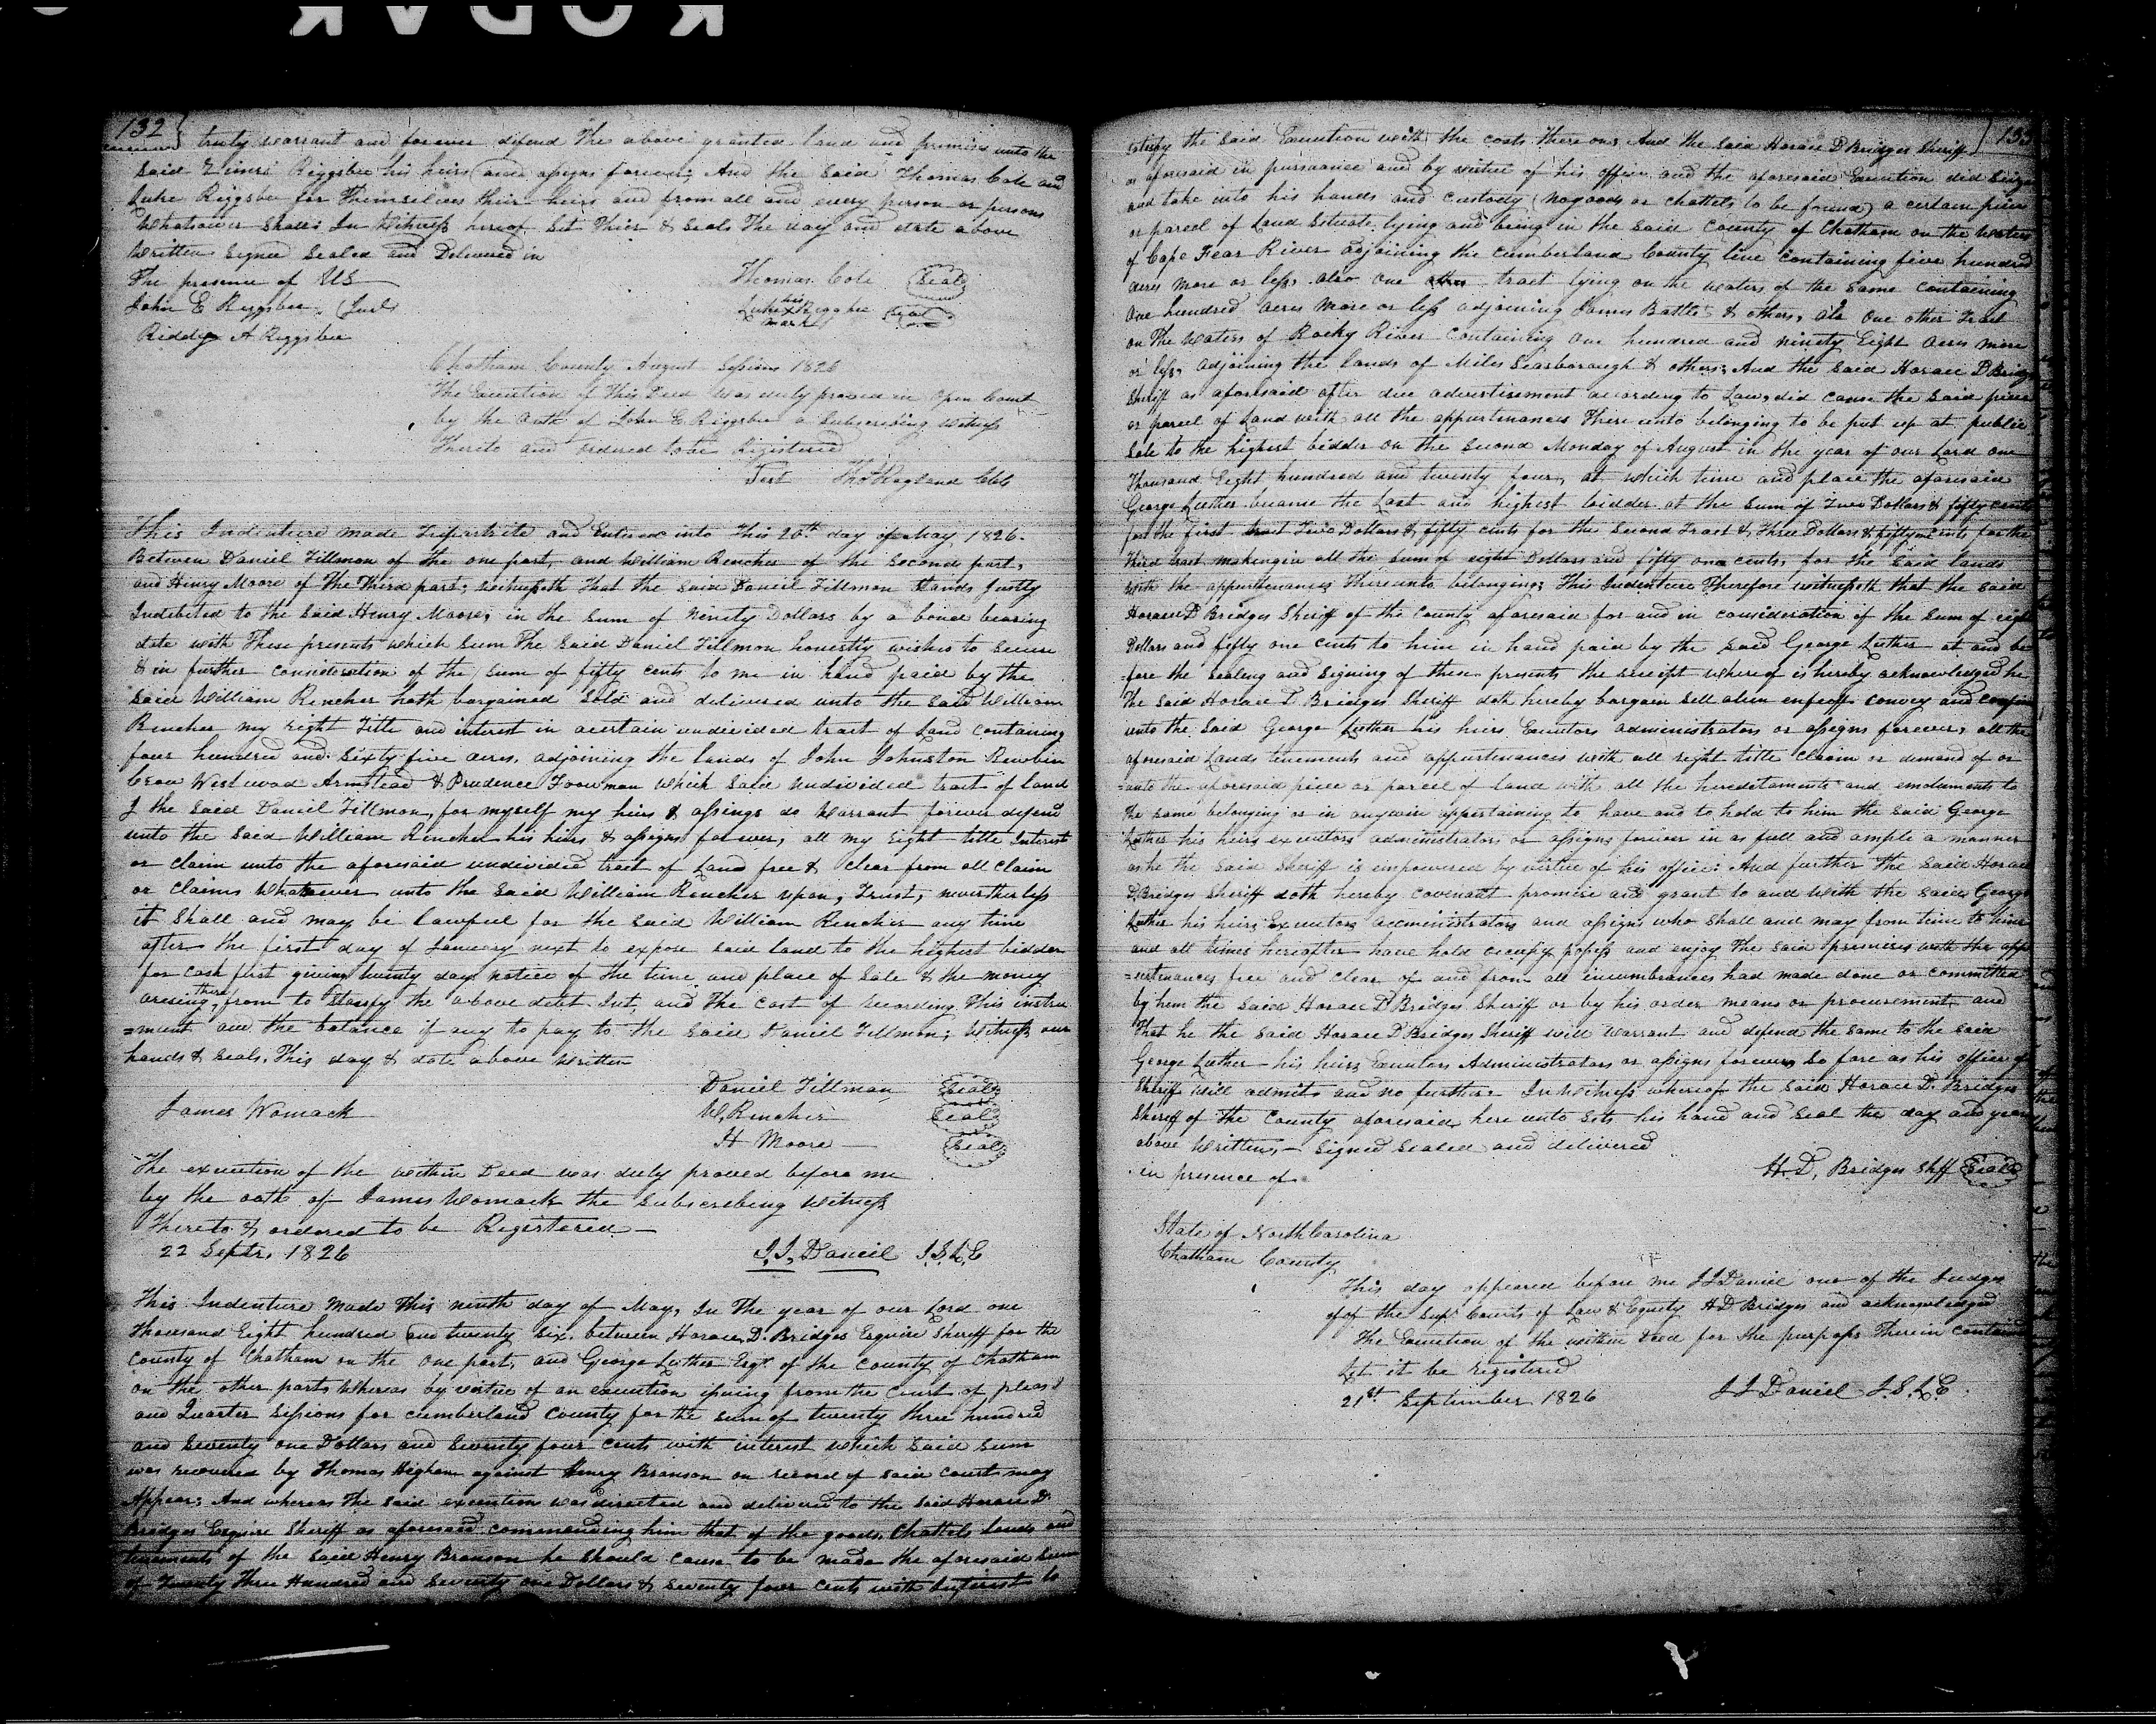 KODAK
132
truly warrant and forever defend The above granted land and premises unto the
Said Zimri Riggsbee his heirs and assigns forever; And the Said Thomas Cole and
Luke Riggsbee for Themselves their heirs and from all and every person or persons
Whatsoever Shall: In Witness hereof Set Thier & Seals The day and date above
Written Signed Sealed and Delivered in
The presence of US
Thomas Cole (Seal)
John E Riggsbee (Jurt
his
Luke X Riggsbee (Seal)
mark
Riddy A Riggsbee
Chatham County August Sessions 1826
The Execution of This Deed was duly proved in Open Court
by the Oath of John E Riggsbee a Subscribing Witness
Thereto and ordered to be Registered
Test Thos Ragland Clk
This Indenture made Tripartite and Entered into This 20th day of May 1826.
Between Daniel Tillmon of the one part, and William Rencher of the Second part,
and Henry Moore of The Third part; witnesseth That the Said Daniel Tillmon Stands Justly
Indebted to the Said Henry Moore, in the Sum of Ninety Dollars by a bond bearing
date with These presents which Sum The Said Daniel Tillmon honestly wishes to Secure
& in further Consideration of the Sum of fifty cents to me in hand paid by the
Said William Rencher hath bargained Sold and delivered unto the Said William
Rencher my right Title and interest in a certain undivided tract of Land Containing
four hundred and Sixty five acres, adjoining the lands of John Johnston Rewbin
Crow Westwood Armstead & Prudence which Said undivided tract of land
I the Said Daniel Tillmon, for myself my heirs & assings do Warrant forever defend
unto the Said William Rencher his heirs & assigns forever, all my right title Interest
or Claim unto the aforesaid undivided tract of Land free & Clear from all Claim
or Claims Whatsoever unto the Said William Rencher Upon, Trust, nevertherless
it Shall and may be lawful for the Said William Rencher any time
after the first day of January next to expose Said land to the highest bidder
for Cash first giving twenty days notice of the time and place of Sale & the money
arising therefrom to Stasify the above debt Int, and The Cost of recording This instru
=ment and the balance if any to pay to the Said Daniel Tillmon; Witness our
hands & Seals, This day & date above Written
Daniel Tillman (Seal)
James Womack
W, Rencher (Seal)
H Moore (Seal)
The execution of the within Deed was duly proved before me
by the oath of James Womack the Subscribing Witness
Thereto & ordered to be Registered
22 Septr, 1826
J, J, Daniel J.S.L.E
This Indenture Made This ninth day of May, In The year of our Lord one
Thousand Eight hundred and twenty Six, between Horace, D. Bridges Esquire Sheriff for the
County of Chatham on the one part, and George Luther Esqr. of the County of Chatham
on the other parts Whereas by virtue of an execution issuing from the Court of pleas &
and Quarter Sessions for Cumberland County for the Sum of twenty three hundred
and Seventy one Dollars and Seventy four cents with interest which Said Sum
was recovered by Thomas Higham against Henry Branson on record of Said Court may
Appear; And whereas The Said execution was directed and delivered to the Said Horace D
Bridges Esquire Sheriff as aforesaid commanding him that of the goods, Chattels lands and
tenements of the Said Henry Branson he Should Cause to be made the aforesaid Sum
of Twenty Three Hundred and Seventy one Dollars & Seventy four Cents with Interest to
133
Satisfy the Said Execution with the costs thereon; And the Said Horace D Bridges Sheriff
as aforesaid in pursuance and by virtue of his office and the aforesaid Execution did Seize
and take into his hands and Custody (no goods or chattels to be found) a certain piece
or parcel of Land Situate lying and being in the Said County of Chatham on the Waters
of Cape Fear River adjoining the Cumberland County line Containing five hundred
acres more or less also one other tract lying on the waters of the Same Containing
One hundred acres more or less adjoining James Battle & others, als One other Tract
on The Waters of Rocky River Containing One hundred and ninety Eight acres more
or less, adjoining the lands of Miles Scarborough & others; And the Said Horace D Bridges
Sheriff as aforesaid after due advertisement according to Law, did cause the Said piece
or parcel of Land with all the appurtenances There unto belonging to be put up at public
Sale to the highest bidder on the Second Monday of August in the year of our Lord one
Thousand Eight hundred and twenty four, at which time and place the aforesaid
George Luther became the Last and highest bidder at the Sum of Two Dollars & fifty cents
for the first tract Two Dollars & fifty cents for the Second Tract & Three Dollars & fifty one cents for the
Third tract making in all the Sum of eight Dollars and fifty one cents, for the Said lands
with the appurtenances thereunto belonging; This Indenture Therefore witnesseth that the Said
Horace D Bridges Sheriff of the County aforesaid for and in Consideration of the Sum of eight
Dollars and fifty one Cents to him in hand paid by the Said George Luther at and be
=fore the Sealing and Signing of these presents the receipt whereof is hereby acknowledged he
The Said Horace D Bridges Sheriff doth hereby bargain Sell alien enfeoff convey and confirm
unto the Said George Luther his heirs Executors administrators or assigns forever, all the
aforesaid Lands tenements and appurtenances with all right title Claim or demand of or
=unto the aforesaid piece or parcel of land with all the heredetaments and emoluments to
the Same belonging or in anywise appertaining to have and to hold to him the Said George
Luther his heirs executors administrators or assigns forever in as full and ample a manner
as he the Said Sheriff is empowered by virtue of his office: And further The Said Horace
D Bridges Sheriff doth hereby covenant promise and grant to and With the Said George
Luther his heirs Executors administrators and assigns who Shall and may from time to time
and all times hereafter have hold occupy, possess and enjoy The Said premises with the app
=urtenances free and Clear of and from all incumbrances had made done or committed
by him the Said Horace D Bridges Sheriff or by his order means or procurement, and
That he the Said Horace D Bridges Sheriff will Warrant and defend the Same to the Said
George Luther his heirs Executors Administrators or assigns forever, So fare as his office of
Sheriff Will admit and no further In Witness whereof the Said Horace D. Bridges
Sheriff of The County aforesaid, here unto Sets his hand and Seal the day and year
above Written, Signed Sealed and delivered
in presence of
H. D, Bridges Shff (Seal)
State of North Carolina
Chatham County
This day appeared before me J J Daniel one of the Judges
of of the Supr Courts of Law & Equity H D Bridges and acknowledged
The Execution of the within Deed for the purposs Therein contained
Let it be registered
21st September 1826 J J Daniel J.S.L.E.